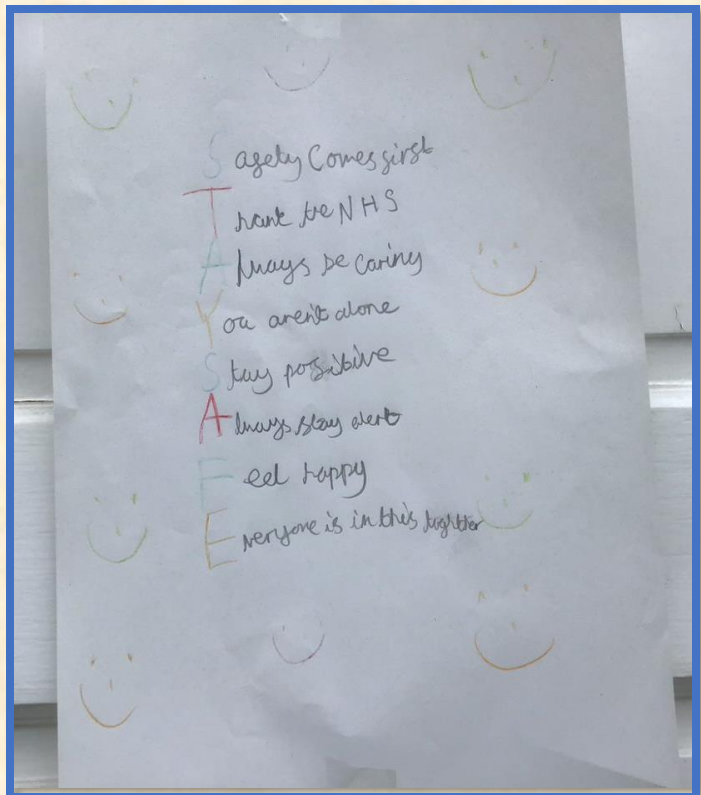 Safety Comes first
Thank the NHS
Always be caring
You aren't alone
Stay possitive
Always stay alert
Feel happy
Everyone is in this togther